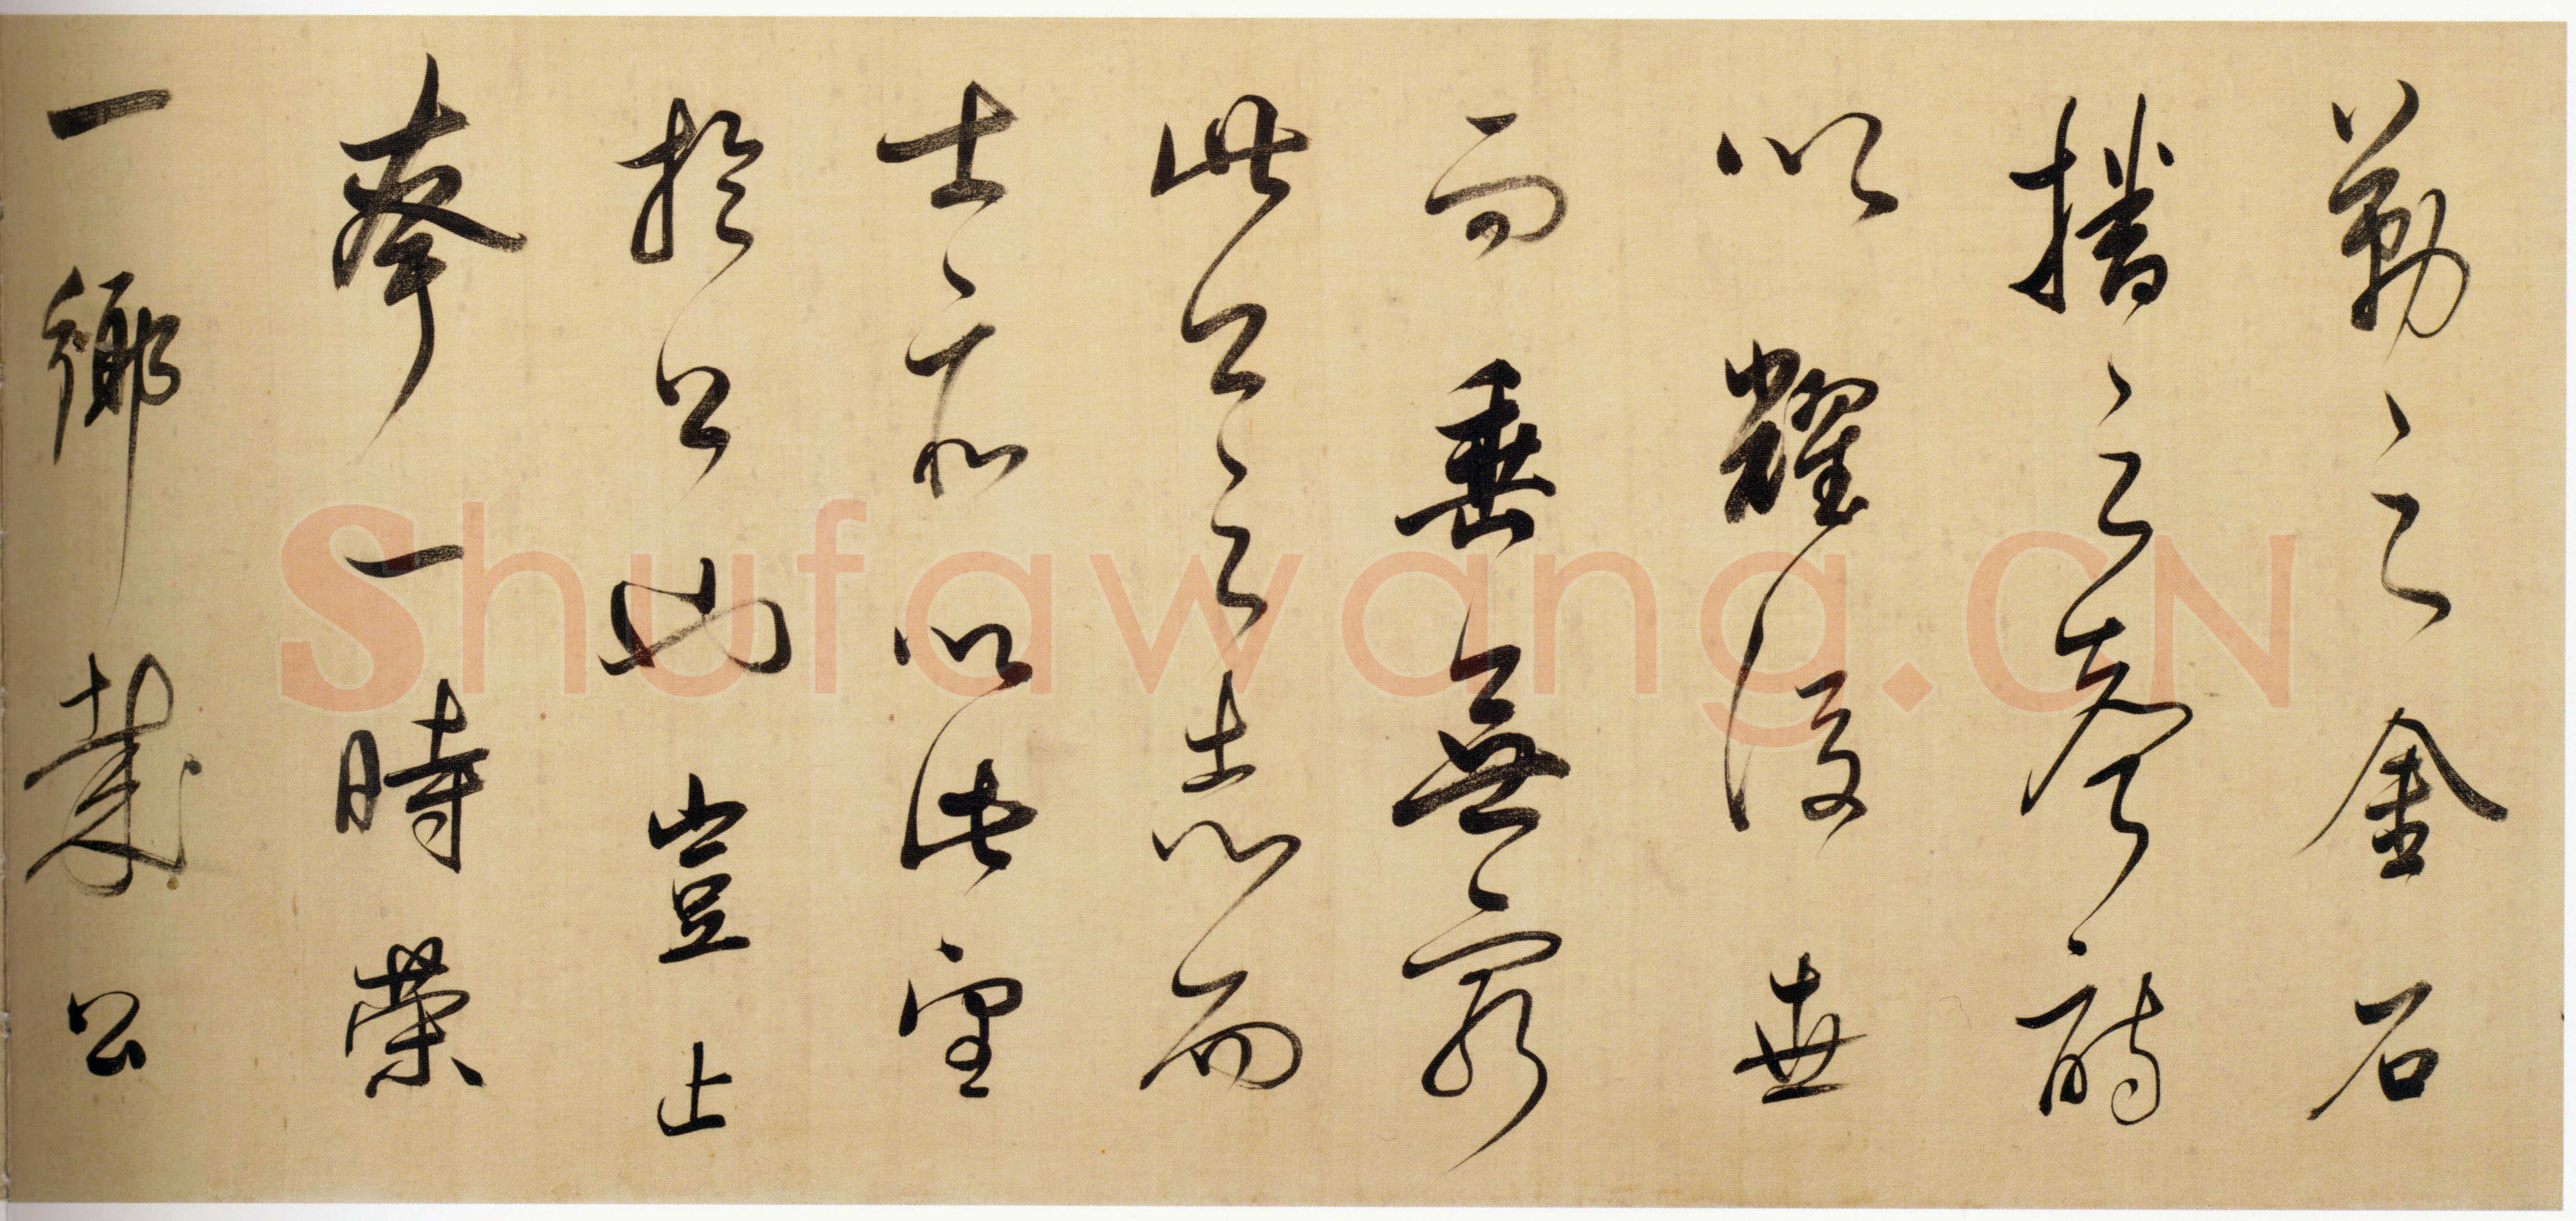 勒之金石
播之聲詩
以耀後世
而垂無窮
此公之志而
士亦以此望
於公也豈止
夸一時榮
一鄉哉公
Shufawang.CN